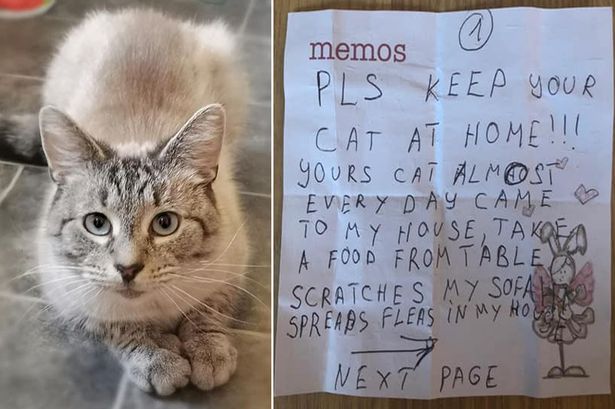 1
memos
PLS KEEP YOUR
CAT AT HOME!!!
YOURS CAT ALMOST
EVERY DAY CAME
TO MY HOUSE, TAKE
A FOOD FROM TABLE
SCRATCHES MY SOFA
SPREADS FLEAS IN MY
NEXT PAGE